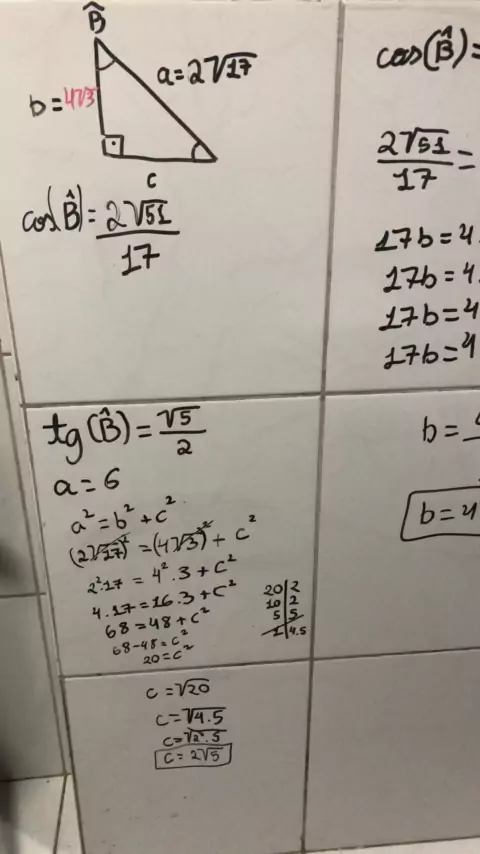 B̂
a=2√17
b=4√3
c
cos(B̂)=2√51/17
cos(B̂)=
2√51/17=
17b=4.
17b=4.
17b=4
17b=4
b=
b=4
tg(B̂)=√5/2
a=6
a²=b²+c²
(2√17)²=(4√3)²+c²
2².17=4².3+c²
4.17=16.3+c²
68=48+c²
68-48=c²
20=c²
20|2
10|2
5|5
1|4.5
c=√20
c=√4.5
c=√2².5
c=2√5